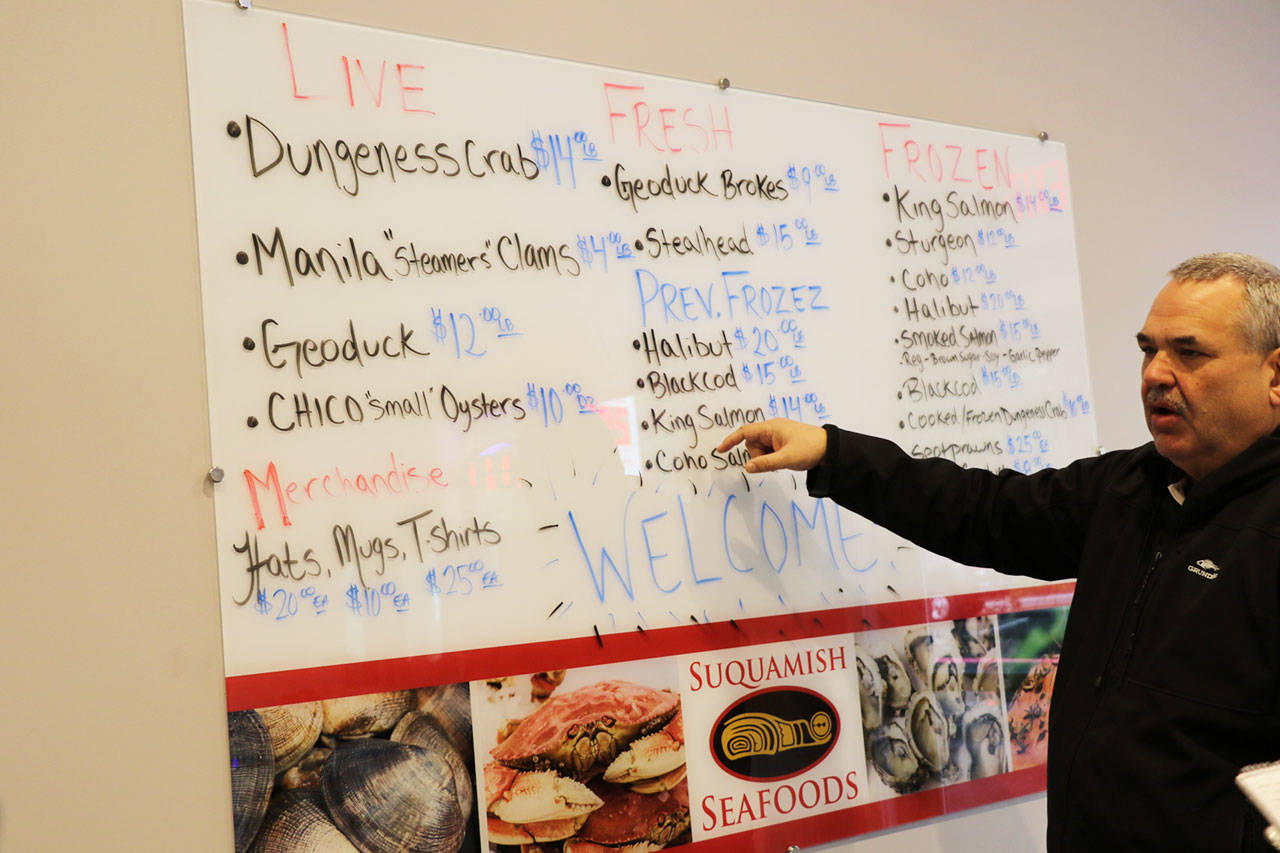 LIVE
• Dungeness Crab $14.00 LB
• Manila "Steamers" Clams $4.00 LB
• Geoduck $12.00 LB
• CHICO "small" Oysters $10.00 DZ
Merchandise
Hats, Mugs, T-shirts
$20.00 EA $10.00 EA $25.00 EA
FRESH
• Geoduck Brokes $9.00 LB
• Stealhead $15.00 LB
PREV. FROZEZ
• Halibut $20.00 LB
• Blackcod $15.00 LB
• King Salmon $14.00 LB
• Coho
FROZEN
• King Salmon $14.00 LB
• Sturgeon $12.00 LB
• Coho $12.00 LB
• Halibut $20.00 LB
• Smoked Salmon $15.00 LB
• Reg - Brown Sugar - Soy - Garlic Pepper
• Blackcod $15.00 LB
• Cooked/Frozen Dungeness Crab
Spotprawns $25.00
WELCOME
SUQUAMISH
SEAFOODS